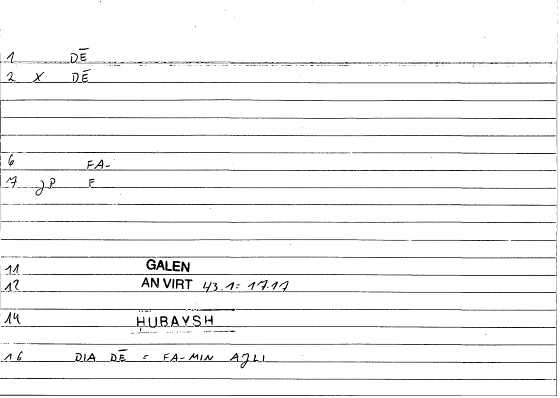 1 DĒ
2 X DĒ
6 FA-
17 JP F
11 GALEN
12 AN VIRT 43.1= 17.17
14 HUBAYSH
16 DIA DĒ = FA-MIN AJLI